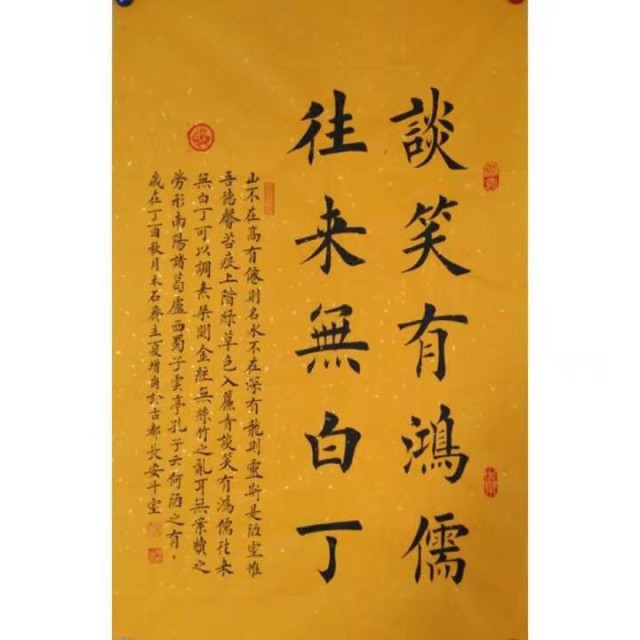 談笑有鴻儒
往来無白丁
山不在高有僊則名水不在深有龍則靈斯是陋室惟
吾德馨苔痕上階綠草色入簾青談笑有鴻儒往来
無白丁可以調素琴閱金經無絲竹之亂耳無案牘之
勞形南陽諸葛廬西蜀子雲亭孔子云何陋之有，
歲在丁酉秋月木石齋主夏增於古都長安斗室